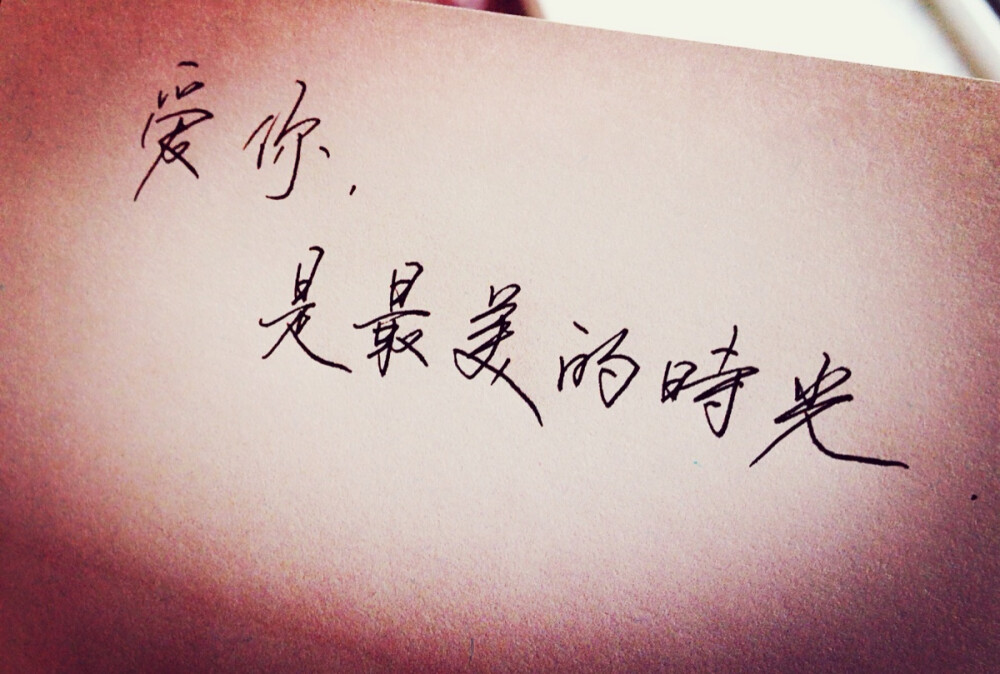 爱你，
是最美的時光.